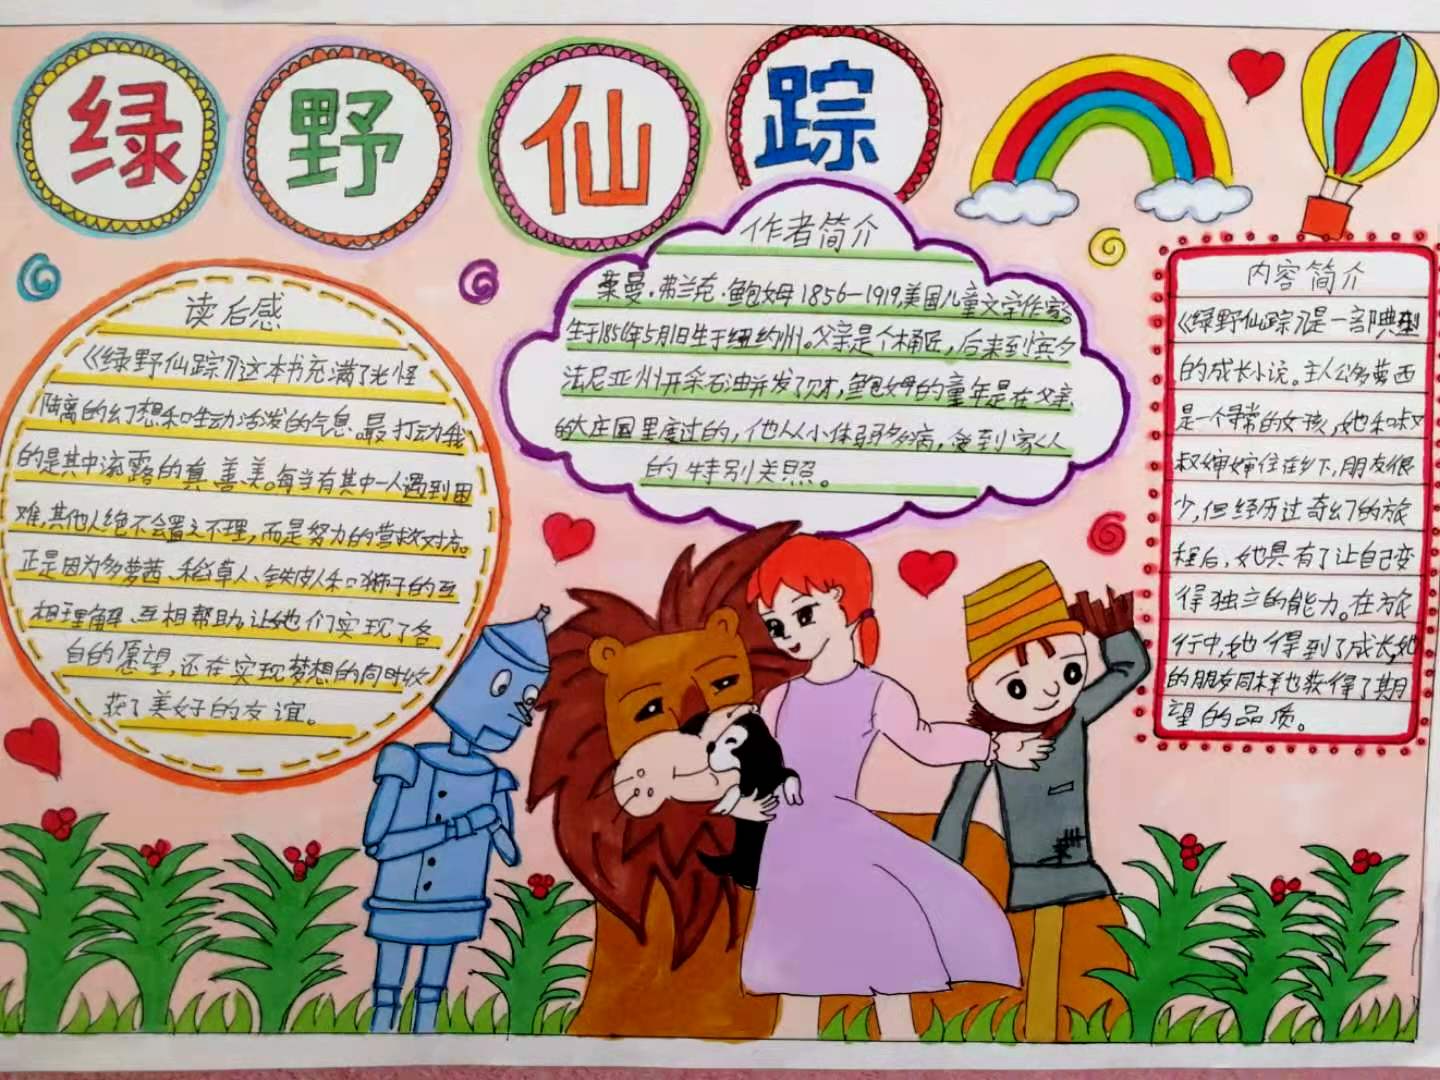 绿野仙踪
作者简介
莱曼·弗兰克·鲍姆1856-1919,美国儿童文学作家。
生于1856年5月1日生于纽约州。父亲是个桶匠,后来到宾夕
法尼亚州开采石油并发了财,鲍姆的童年是在父亲
的大庄园里度过的,他从小体弱多病,受到家人
的特别关照。
内容简介
《绿野仙踪》是一部典型
的成长小说。主人公多萝西
是一个寻常的女孩,她和叔
叔婶婶住在乡下,朋友很
少,但经历过奇幻的旅
程后,她具有了让自己变
得独立的能力。在旅
行中,她得到了成长,她
的朋友同样也获得了期
望的品质。
读后感
《绿野仙踪》这本书充满了光怪
陆离的幻想和生动活泼的气息。最打动我
的是其中流露的真善美。每当有其中一人遇到困
难,其他人绝不会置之不理,而是努力的营救对方。
正是因为多萝茜、稻草人、铁皮人和狮子的互
相理解、互相帮助,让她们实现了各
自的愿望,还在实现梦想的同时收
获了美好的友谊。